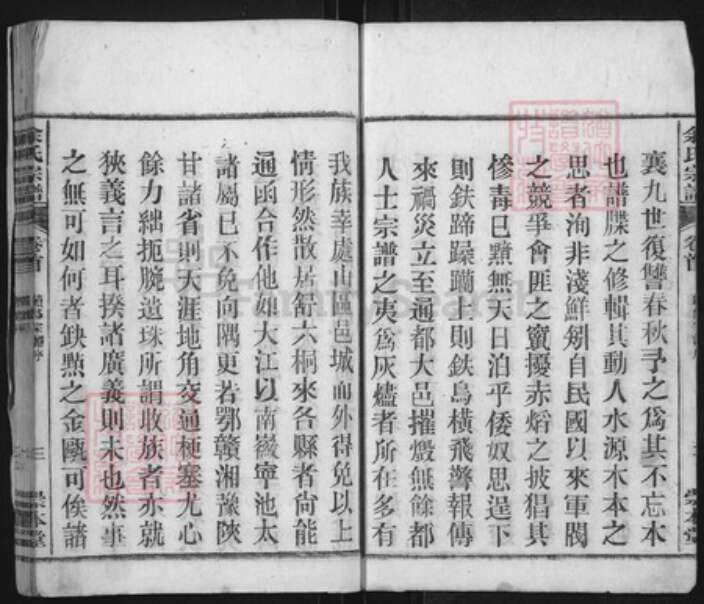 襄九世復讐春秋予之爲其不忘本
也譜牒之修輯其動人水源木本之
思者洵非淺鮮矧自民國以來軍閥
之競爭會匪之竄擾赤熖之披猖其
慘毒已黯無天日泊乎倭奴思逞下
則鉄蹄躁躪上則鉄鳥橫飛警報傳
來禍災立至通都大邑摧燬無餘都
人士宗譜之夷爲灰燼者所在多有
我族幸處山區邑城而外得免以上
情形然散居舒六桐來各縣者尙能
通函合作他如大江以南嶶寧池太
諸屬已不免向隅更若鄂贛湘豫陝
甘諸省則天涯地角交通梗塞尤心
餘力絀扼腕遺珠所謂收族者亦就
狹義言之耳揆諸廣義則未也然事
之無可如何者缺㸃之金甌可俟諸
余氏宗譜
卷首
三
崇本堂
FamilySearch